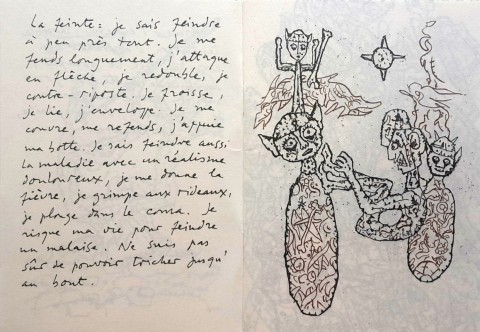 La feinte : je sais feindre
à peu près tout. Je me
fends longuement, j'attaque
en flèche, je redouble, je
contre-riposte. Je froisse,
je lie, j'enveloppe. Je me
couvre, me refends, j'appuie
ma botte. Je sais feindre aussi
la maladie avec un réalisme
douloureux, je me donne la
fièvre, je grimpe aux rideaux,
je plonge dans le coma. Je
risque ma vie pour feindre
un malaise. Ne suis pas
sûr de pouvoir tricher jusqu'
au bout.